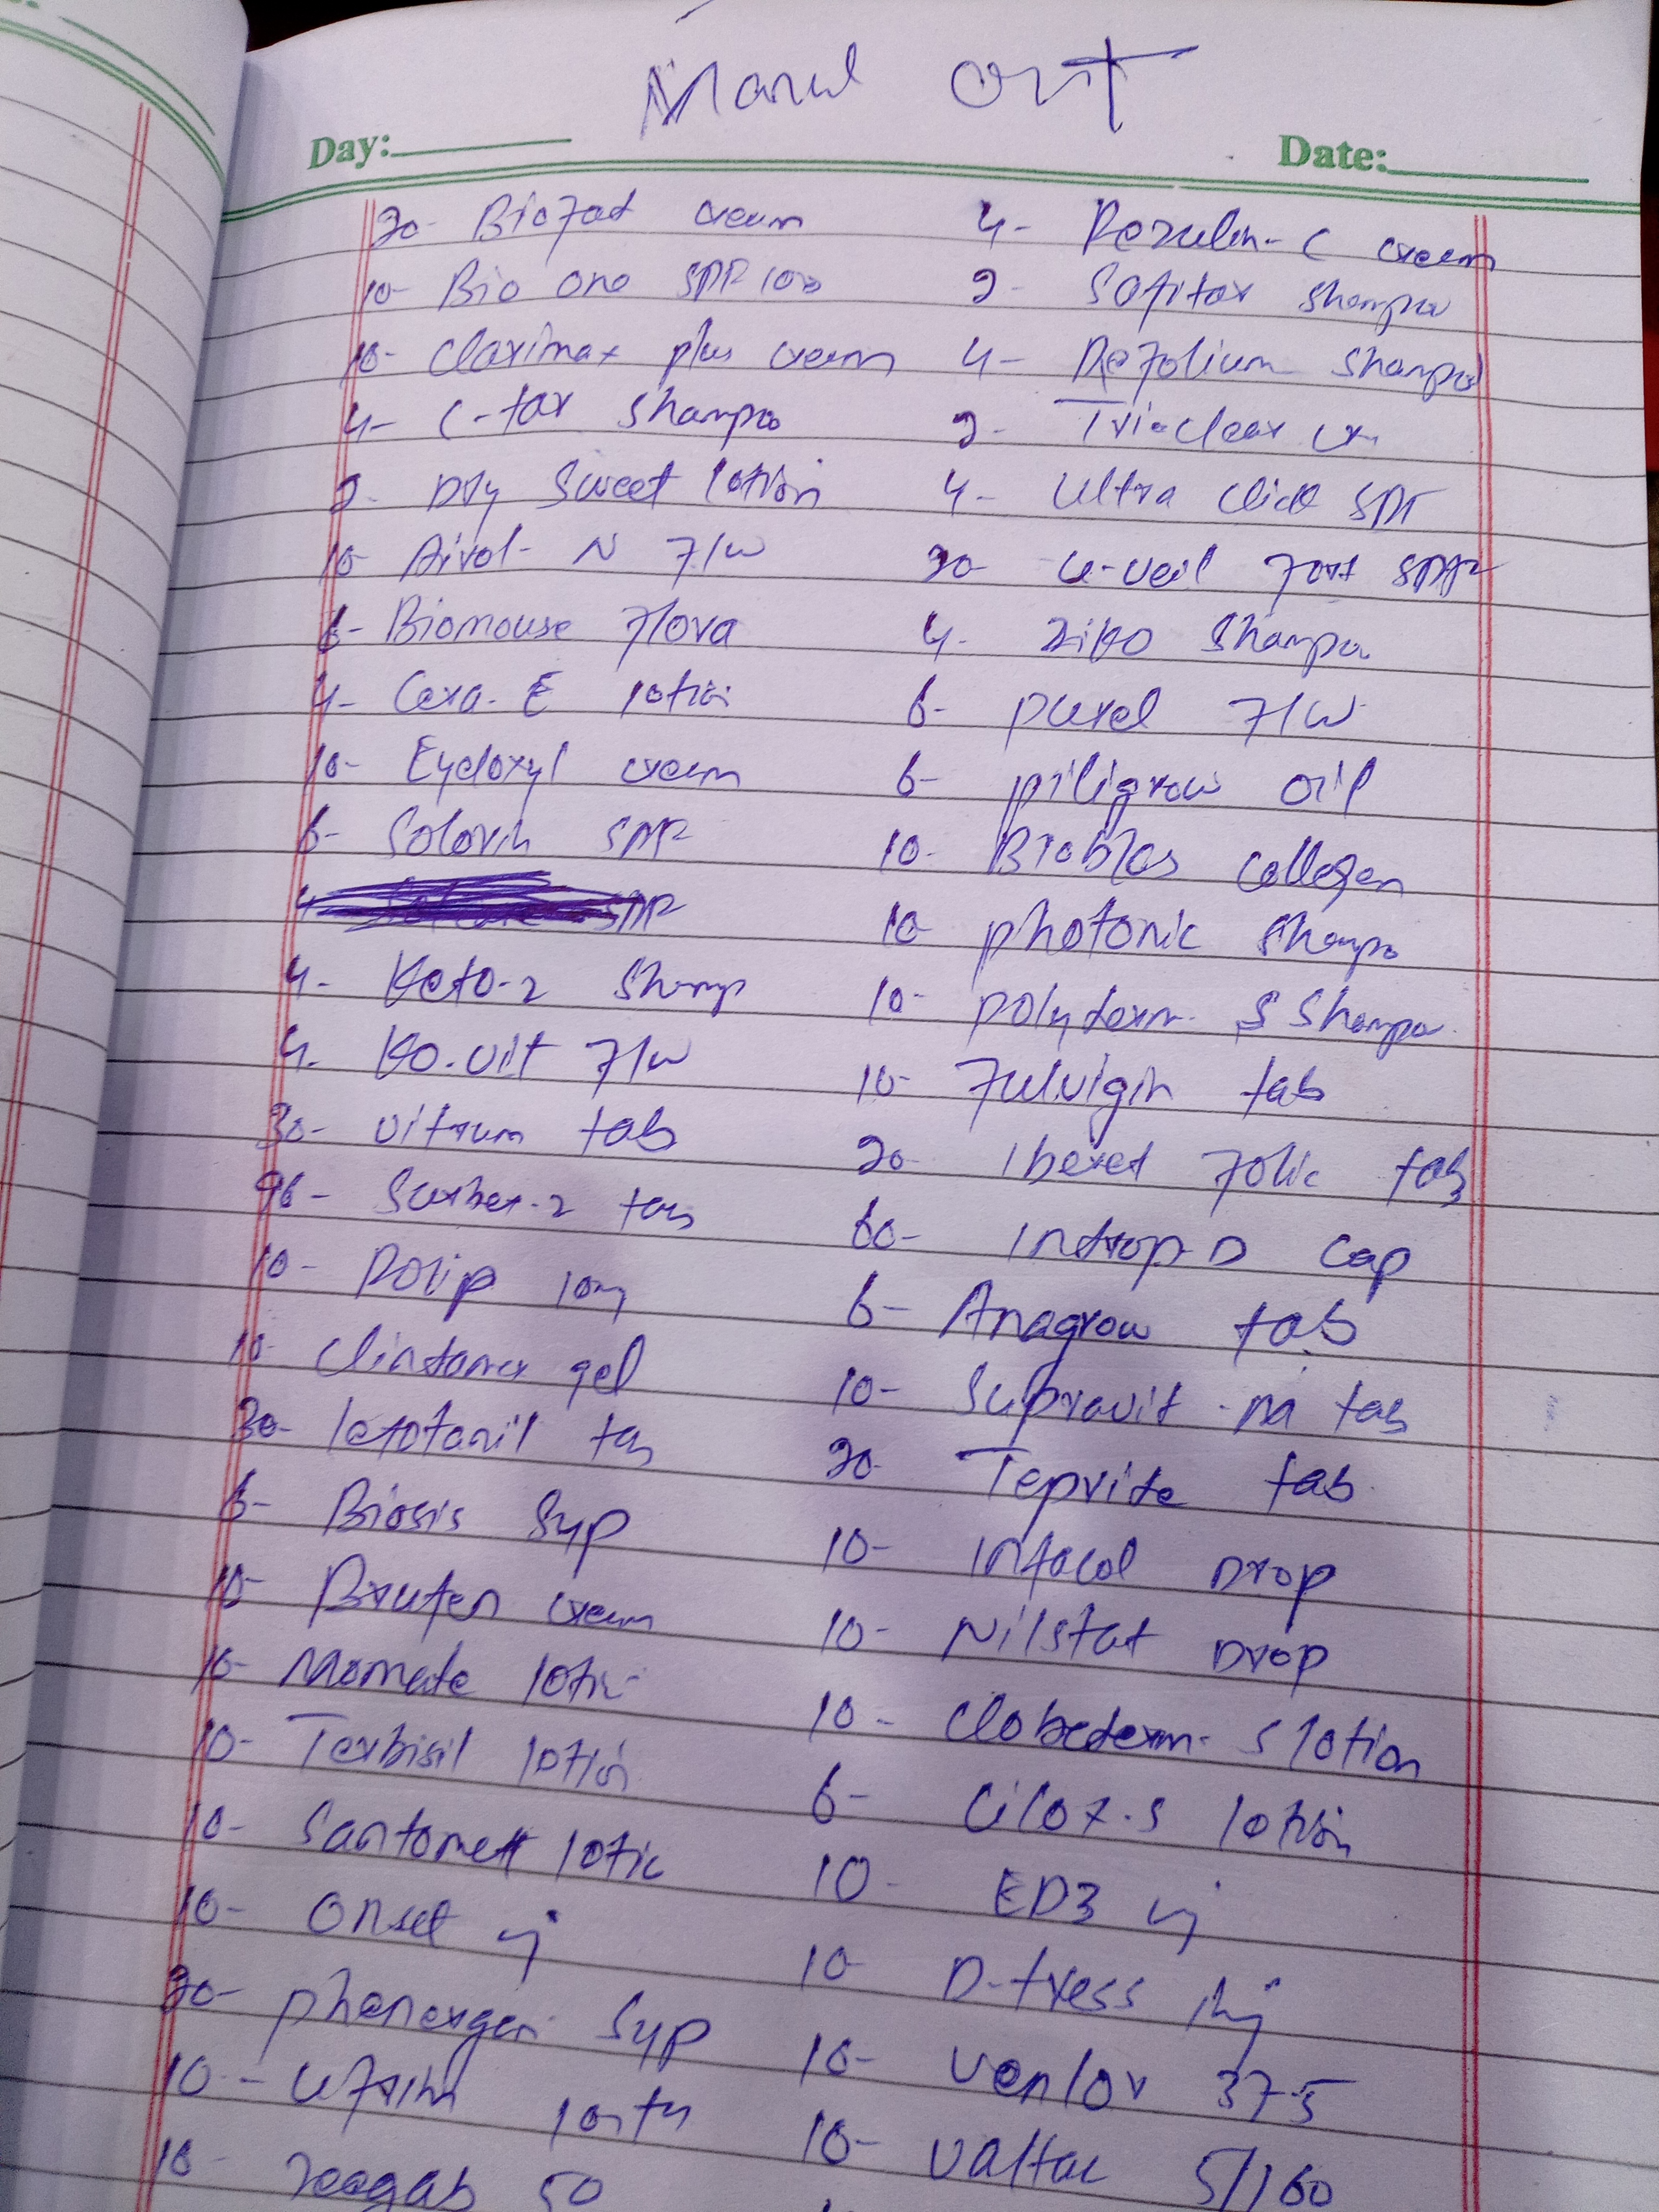 out
Day:
Date:
20- Biofad cream
10- Bio one SPF 100
10- Clarimax plus cream
4- C-tar Shampo
2- Dry Sweet lotion
10- Aivol-N F/W
6- Biomouse Flora
4- Cera-E lotion
10- Eycloxyl cream
6- Solorin SPF
4- SPF
4- Keto-2 Shamp
4- Ko.vit F/W
30- vitrum tab
96- Surbex-2 tab
10- 10mg
10- gel
30- tab
6- Biosis Syp
10- Brufen cream
10- Momate lotion
10- Terbisil lotion
10- Santomett lotio
10- Onset inj
30- phenergen Syp
10-
10- Zeegab 50
4- Rezulin-C cream
2- Sofitar Shampo
4- Refolium Shampo
2- Tri-clear cr
4- Ultra Click SPF
20- U-veil Fort SPF
4- Ziko Shampo
6- purel F/W
6- piligrow oil
10- Bioblas Collegen
10- photonic Shampo
10- polyderm S Shampo
10- Fulvigin tab
20- Iberet Folic tab
60- Indrop D Cap
6- Anagrow tab
10- Supravit-M tab
20- Tepride tab
10- Infacol Drop
10- Nilstat Drop
10- Clobederm-S lotion
6- Cilox.S lotion
10- ED3 inj
10- D-tress inj
10- Venlor 37.5
10- Valtac 5/160